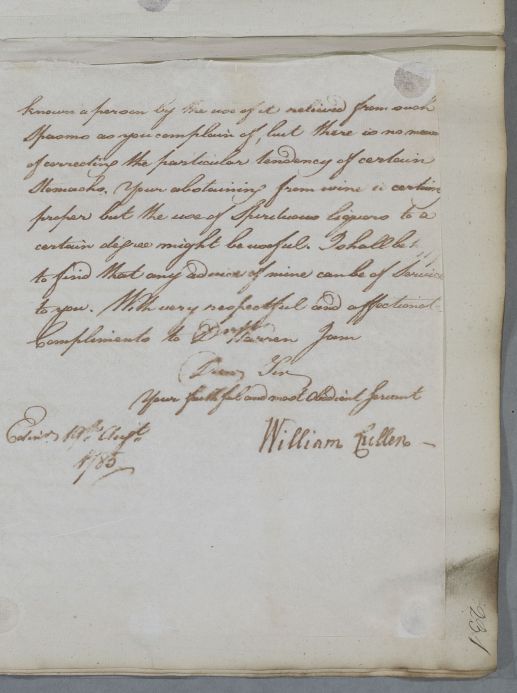 known a person by the use of it relieved from such
Spasms as you complain of, but there is no means
of correcting the particular tendency of certain
Stomachs. Your abstaining from wine is certain
proper but the use of Spirituous liquors to a
certain degree might be useful. I shall be
to find that any advice of mine can be of Service
to you. With very respectful and affectionat
Compliments to Dr Warren I am
Dear Sir
Your faithful and most obedient Servant
William Cullen
Edinr 19th Augt.
1785
231